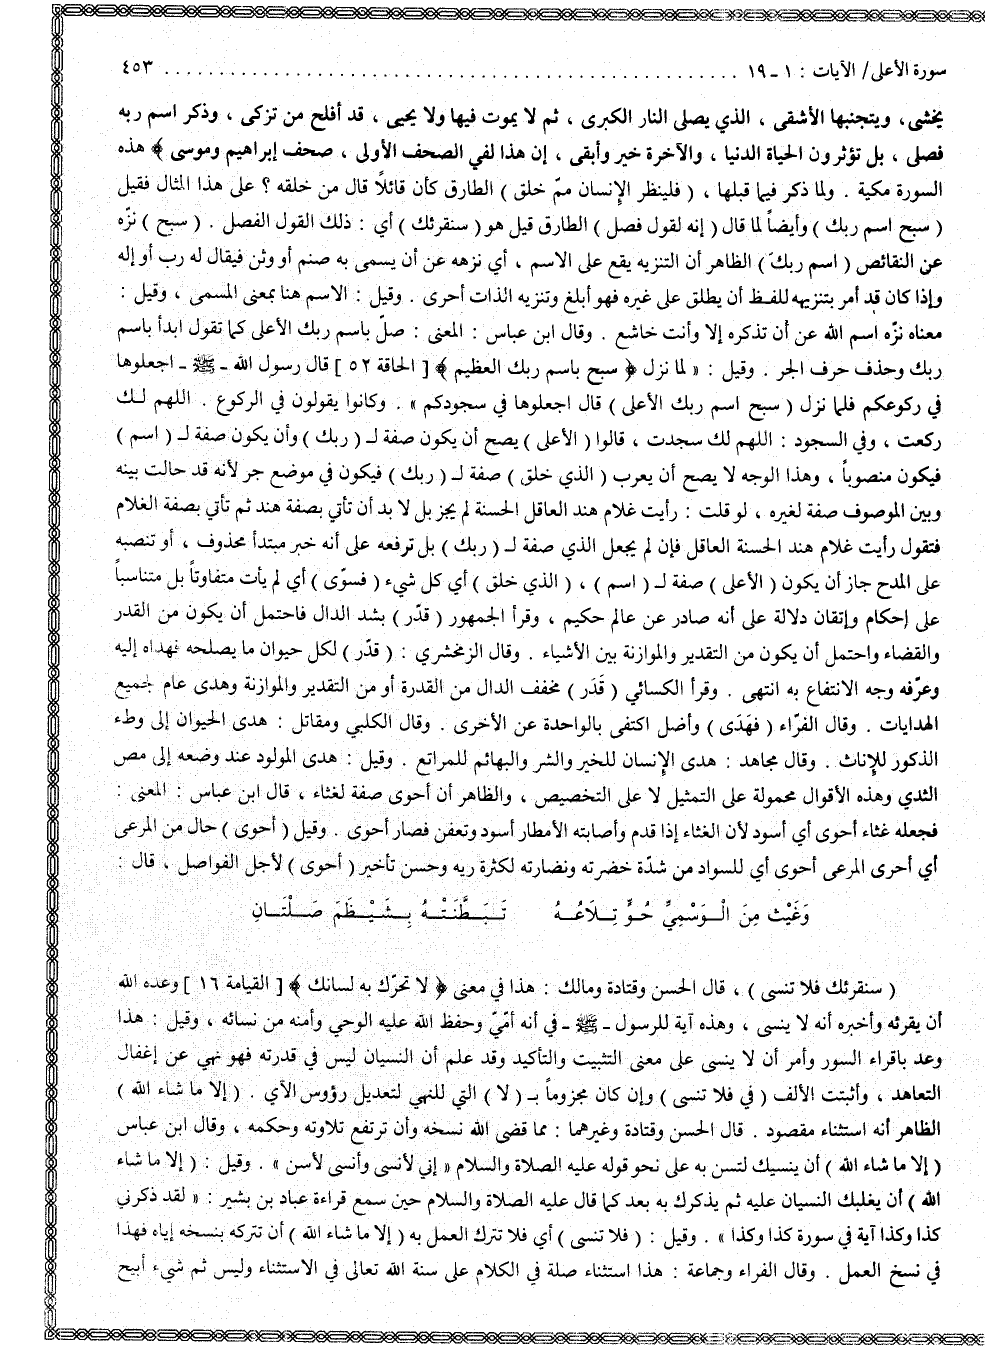 سورة الأعلى/ الآيات : ١ ـ ١٩ . . . . . . . . . . . . . . . . . . . . . . . . . . . . . . . . . . . . . . . . . . . . . . . . . . ٤٥٣
يخشى، ويتجنبها الأشقى ، الذي يصلى النار الكبرى ، ثم لا يموت فيها ولا يحيى ، قد أفلح من تزكى ، وذكر اسم ربه
فصلى ، بل تؤثرون الحياة الدنيا ، والآخرة خير وأبقى ، إن هذا لفي الصحف الأولى ، صحف إبراهيم وموسى ﴾ هذه
السورة مكية . ولما ذكر فيما قبلها ، ( فلينظر الإنسان ممّ خلق ) الطارق كأن قائلاً قال من خلقه ؟ على هذا المثال فقيل
( سبح اسم ربك ) وأيضاً لما قال ( إنه لقول فصل ) الطارق قيل هو ( سنقرئك ) أي : ذلك القول الفصل . ( سبح ) نزّه
عن النقائص ( اسم ربك ) الظاهر أن التنزيه يقع على الاسم ، أي نزهه عن أن يسمى به صنم أو وثن فيقال له رب أو إله
وإذا كان قد أمر بتنزيهه للفظ أن يطلق على غيره فهو أبلغ وتنزيه الذات أحرى . وقيل : الاسم هنا بمعنى المسمى ، وقيل :
معناه نزّه اسم الله عن أن تذكره إلا وأنت خاشع . وقال ابن عباس : المعنى : صلّ باسم ربك الأعلى كما تقول ابدأ باسم
ربك وحذف حرف الجر . وقيل : « لما نزل ﴿ سبح باسم ربك العظيم ﴾ [ الحاقة ٥٢ ] قال رسول الله ـ ﷺ ـ اجعلوها
في ركوعكم فلما نزل ( سبح اسم ربك الأعلى ) قال اجعلوها في سجودكم » . وكانوا يقولون في الركوع . اللهم لك
ركعت ، وفي السجود : اللهم لك سجدت ، قالوا ( الأعلى ) يصح أن يكون صفة لـ ( ربك ) وأن يكون صفة لـ ( اسم )
فيكون منصوباً ، وهذا الوجه لا يصح أن يعرب ( الذي خلق ) صفة لـ ( ربك ) فيكون في موضع جر لأنه قد حالت بينه
وبين الموصوف صفة لغيره ، لو قلت : رأيت غلام هند العاقل الحسنة لم يجز بل لا بد أن تأتي بصفة هند ثم تأتي بصفة الغلام
فتقول رأيت غلام هند الحسنة العاقل فإن لم يجعل الذي صفة لـ ( ربك ) بل ترفعه على أنه خبر مبتدأ محذوف ، أو تنصبه
على المدح جاز أن يكون ( الأعلى ) صفة لـ ( اسم ) ، ( الذي خلق ) أي كل شيء ( فسوّى ) أي لم يأت متفاوتاً بل متناسباً
على إحكام وإتقان دلالة على أنه صادر عن عالم حكيم ، وقرأ الجمهور ( قدّر ) بشد الدال فاحتمل أن يكون من القدر
والقضاء واحتمل أن يكون من التقدير والموازنة بين الأشياء . وقال الزمخشري : ( قدّر ) لكل حيوان ما يصلحه فهداه إليه
وعرّفه وجه الانتفاع به انتهى . وقرأ الكسائي ( قَدَر ) مخفف الدال من القدرة أو من التقدير والموازنة وهدى عام لجميع
الهدايات . وقال الفرّاء ( فهَدَى ) وأضل اكتفى بالواحدة عن الأخرى . وقال الكلبي ومقاتل : هدى الحيوان إلى وطء
الذكور للإناث . وقال مجاهد : هدى الإنسان للخير والشر والبهائم للمراتع . وقيل : هدى المولود عند وضعه إلى مص
الثدي وهذه الأقوال محمولة على التمثيل لا على التخصيص ، والظاهر أن أحوى صفة لغثاء ، قال ابن عباس : المعنى :
فجعله غثاء أحوى أي أسود لأن الغثاء إذا قدم وأصابته الأمطار أسود وتعفن فصار أحوى . وقيل ( أحوى ) حال من المرعى
أي أحرى المرعى أحوى أي للسواد من شدّة خضرته ونضارته لكثرة ريه وحسن تأخير ( أحوى ) لأجل الفواصل ، قال :
وَغَيْثٍ مِنَ الْوَسْمِيِّ حُوٍّ تِلَاعُهُ تَبَطَّنْتُهُ بِشَيْظَمٍ صَلَتَانِ
( سنقرئك فلا تنسى ) ، قال الحسن وقتادة ومالك : هذا في معنى ﴿ لا تحرّك به لسانك ﴾ [ القيامة ١٦ ] وعده الله
أن يقرئه وأخبره أنه لا ينسى ، وهذه آية للرسول ـ ﷺ ـ في أنه أمّيّ وحفظ الله عليه الوحي وأمنه من نسائه ، وقيل : هذا
وعد باقراء السور وأمر أن لا ينسى على معنى التثبيت والتأكيد وقد علم أن النسيان ليس في قدرته فهو نهي عن إغفال
التعاهد ، وأثبتت الألف ( في فلا تنسى ) وإن كان مجزوماً بـ ( لا ) التي للنهي لتعديل رؤوس الآي . ( إلا ما شاء الله )
الظاهر أنه استثناء مقصود . قال الحسن وقتادة وغيرهما : مما قضى الله نسخه وأن ترتفع تلاوته وحكمه ، وقال ابن عباس
( إلا ما شاء الله ) أن ينسيك لتسن به على نحو قوله عليه الصلاة والسلام « إني لأنسى وأنسى لأسن » . وقيل : ( إلا ما شاء
الله ) أن يغلبك النسيان عليه ثم يذكرك به بعد كما قال عليه الصلاة والسلام حين سمع قراءة عباد بن بشير : « لقد ذكرني
كذا وكذا آية في سورة كذا وكذا » . وقيل : ( فلا تنسى ) أي فلا تترك العمل به ( إلا ما شاء الله ) أن تتركه بنسخه إياه فهذا
في نسخ العمل . وقال الفراء وجماعة : هذا استثناء صلة في الكلام على سنة الله تعالى في الاستثناء وليس ثم شيء أبيح